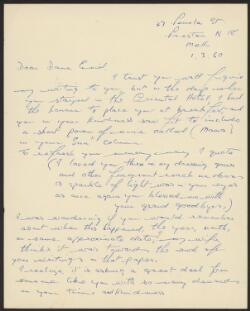 Preston N 18
Melb
1.3.60
Dear Dame Enid
I trust you will forgive
my writing to you but in the days when
you stayed in the Oriental Hotel, I had
the honour to place you at breakfast, and
you in your kindness saw fit to include
a short poem of mine called (Moods)
in your "Sun" column.
To refresh your memory may I quote
(I loved you there in my dreaming years
and other frequent
a sparkle of light was in your eyes
as once again you blessed me with
your grand goodbyes.)
I was wondering if you would remember
about when this happened, the year, month,
or some approximate date, my wife
thinks it was towards the end of
your writings in that paper.
I realize it is asking a great deal from
someone like you with so many demands
on your time and kindness